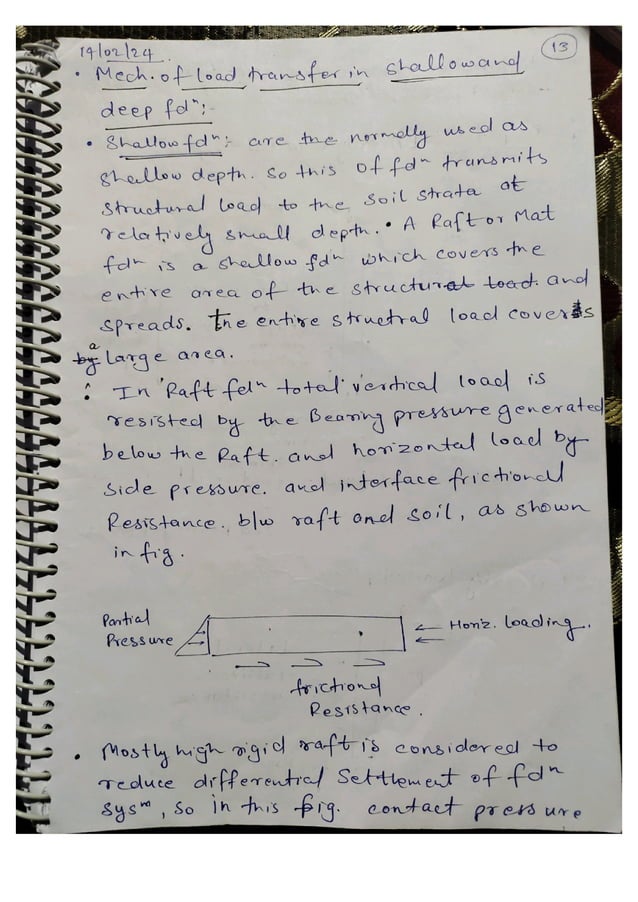 19/02/24 13
• Mech. of load transfer in shallow and
deep fdⁿ:-
• Shallow fdⁿ:- are the normally used as
shallow depth. so this of fdⁿ transmits
structural load to the soil strata at
relatively small depth. • A Raft or Mat
fdⁿ is a shallow fdⁿ which covers the
entire area of the structural load. and
spreads. The entire structral load covers
by a large area.
• In Raft fdⁿ total vertical load is
resisted by the Bearing pressure generated
below the Raft. and horizontal load by
side pressure. and interface frictional
Resistance. b/w raft and soil, as shown
in fig.
Partial
Pressure
← Horiz. loading.
frictional
Resistance.
• Mostly high rigid raft is considered to
reduce differential Settlement of fdⁿ
sysᵐ, so in this fig. contact pressure